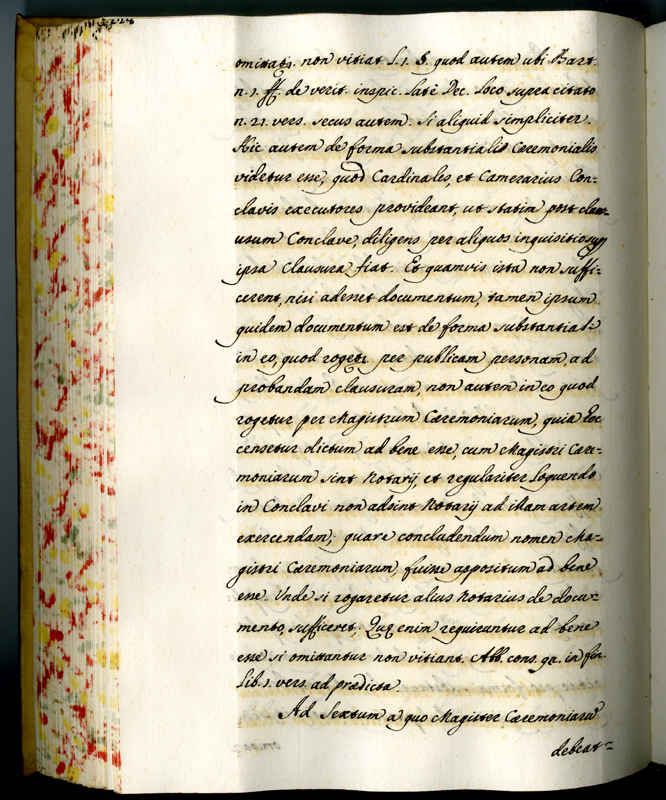 omittat. non vitiat l. 1. §. quod autem ubi Bart.
n. 1. ff. de verit. inspic. latè Dec. loco supra citato
n. 21. vers. secus autem. Si aliquid simpliciter.
Hic autem de forma substantialis Cæremonialis
videtur esse, quod Cardinales, et Camerarius Con=
clavis executores provideant, ut statim post clau=
usum Conclave, diligens per aliquos inquisitio
ipsa clausura fiat. Et quamvis ista non suffi=
cerent, nisi adesset documentum, tamen ipsum
quidem documentum est de forma substantial:
in eo, quod roget. per publicam personam, ad
probandam clausuram, non autem in eo quod
rogetur per Magistrum Cæremoniarum, quia hoc
censetur dictum ad bene esse, cum Magistri Cære=
moniarum sint Notarij, et regulariter loquendo
in Conclavi non adsint Notarij ad illam artem
exercendam; quare concludendum nomen Ma=
gistri Cæremoniarum, fuisse appositum ad bene
esse. Unde si rogaretur alius Notarius de docu=
mento, sufficeret; Quę enim requiruntur ad bene
esse si omittantur non vitiant. Abb. cons. 92. in fin.
lib. 1. vers. ad prædicta.
Ad Sextum a quo Magister Cæremoniarū
debeat=